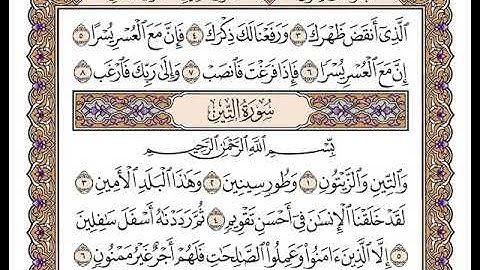 ٱلَّذِىٓ أَنقَضَ ظَهْرَكَ ٣ وَرَفَعْنَا لَكَ ذِكْرَكَ ٤ فَإِنَّ مَعَ ٱلْعُسْرِ يُسْرًا ٥
إِنَّ مَعَ ٱلْعُسْرِ يُسْرًا ٦ فَإِذَا فَرَغْتَ فَٱنصَبْ ٧ وَإِلَىٰ رَبِّكَ فَٱرْغَب ٨
سُورَةُ التِّينِ
بِسْمِ ٱللَّهِ ٱلرَّحْمَٰنِ ٱلرَّحِيمِ
وَٱلتِّينِ وَٱلزَّيْتُونِ ١ وَطُورِ سِينِينَ ٢ وَهَٰذَا ٱلْبَلَدِ ٱلْأَمِينِ ٣
لَقَدْ خَلَقْنَا ٱلْإِنسَٰنَ فِىٓ أَحْسَنِ تَقْوِيمٍ ٤ ثُمَّ رَدَدْنَٰهُ أَسْفَلَ سَٰفِلِينَ
٥ إِلَّا ٱلَّذِينَ ءَامَنُوا۟ وَعَمِلُوا۟ ٱلصَّٰلِحَٰتِ فَلَهُمْ أَجْرٌ غَيْرُ مَمْنُونٍ ٦